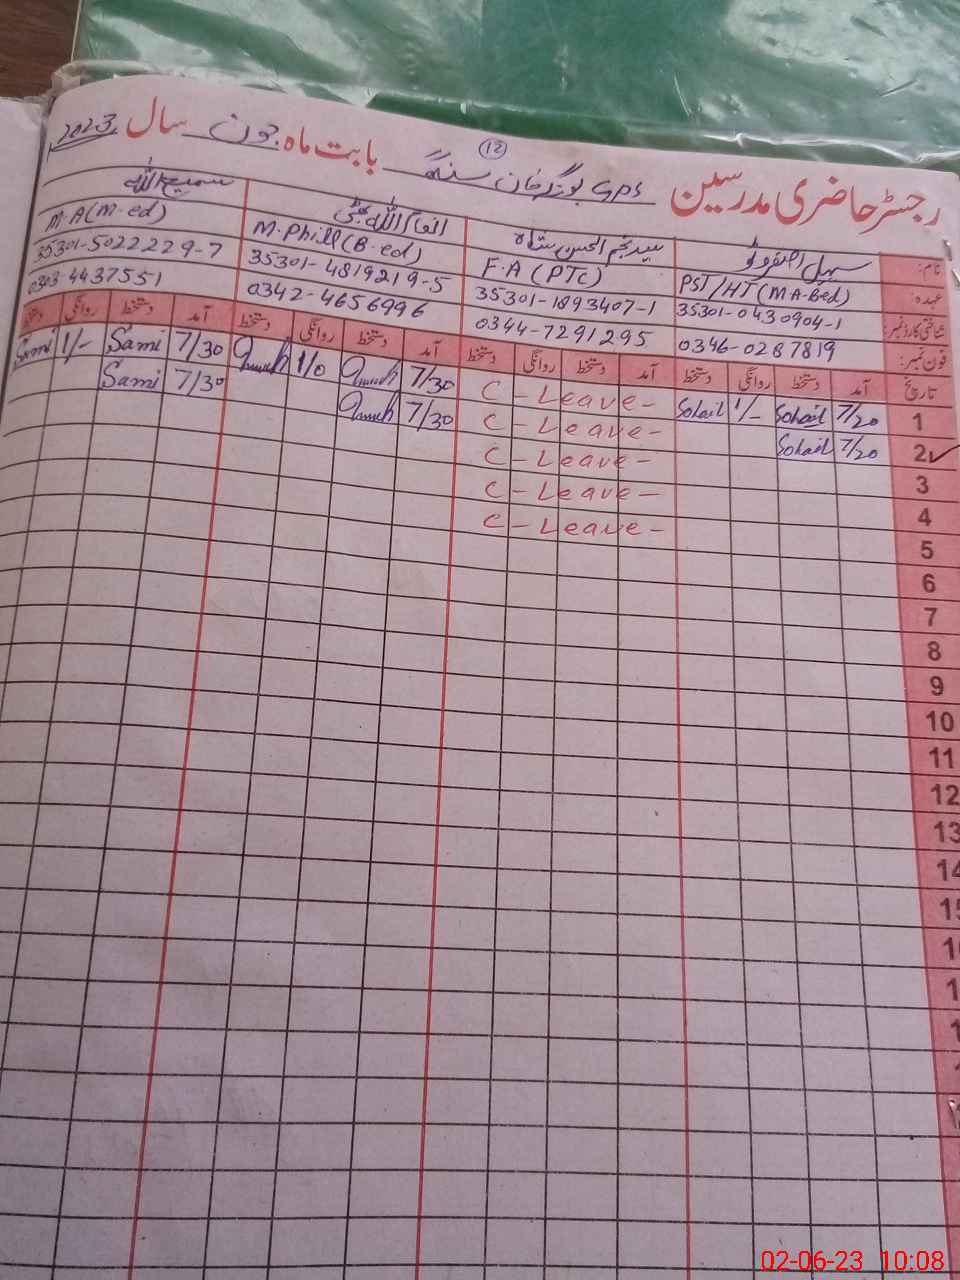 رجسٹر حاضری مدرسین GPS بونگہ خان سنگھ بابت ماہ جون سال 2023
12
نام: سہیل اصغر وٹو سید نجم الحسن شاہ انعام اللہ بھٹی سمیع اللہ
عہدہ: PST/HT (MA-Bed) F.A (PTC) M.Phill (B.ed) M.A (M-ed)
شناختی کارڈ نمبر: 35301-0430904-1 35301-1893407-1 35301-4819219-5 35301-5022229-7
فون نمبر: 0346-0287819 0344-7291295 0342-4656996 0303-4437551
تاریخ آمد دستخط روانگی دستخط آمد دستخط روانگی دستخط آمد دستخط روانگی دستخط آمد دستخط روانگی دستخط
1 7/20 Sohail 1/- Sohail C - Leave - 7/30 1/0 7/30 Sami 1/- Sami
2 7/20 Sohail C - Leave - 7/30 7/30 Sami
3 C - Leave -
4 C - Leave -
5 C - Leave -
6
7
8
9
10
11
12
13
14
15
02-06-23 10:08